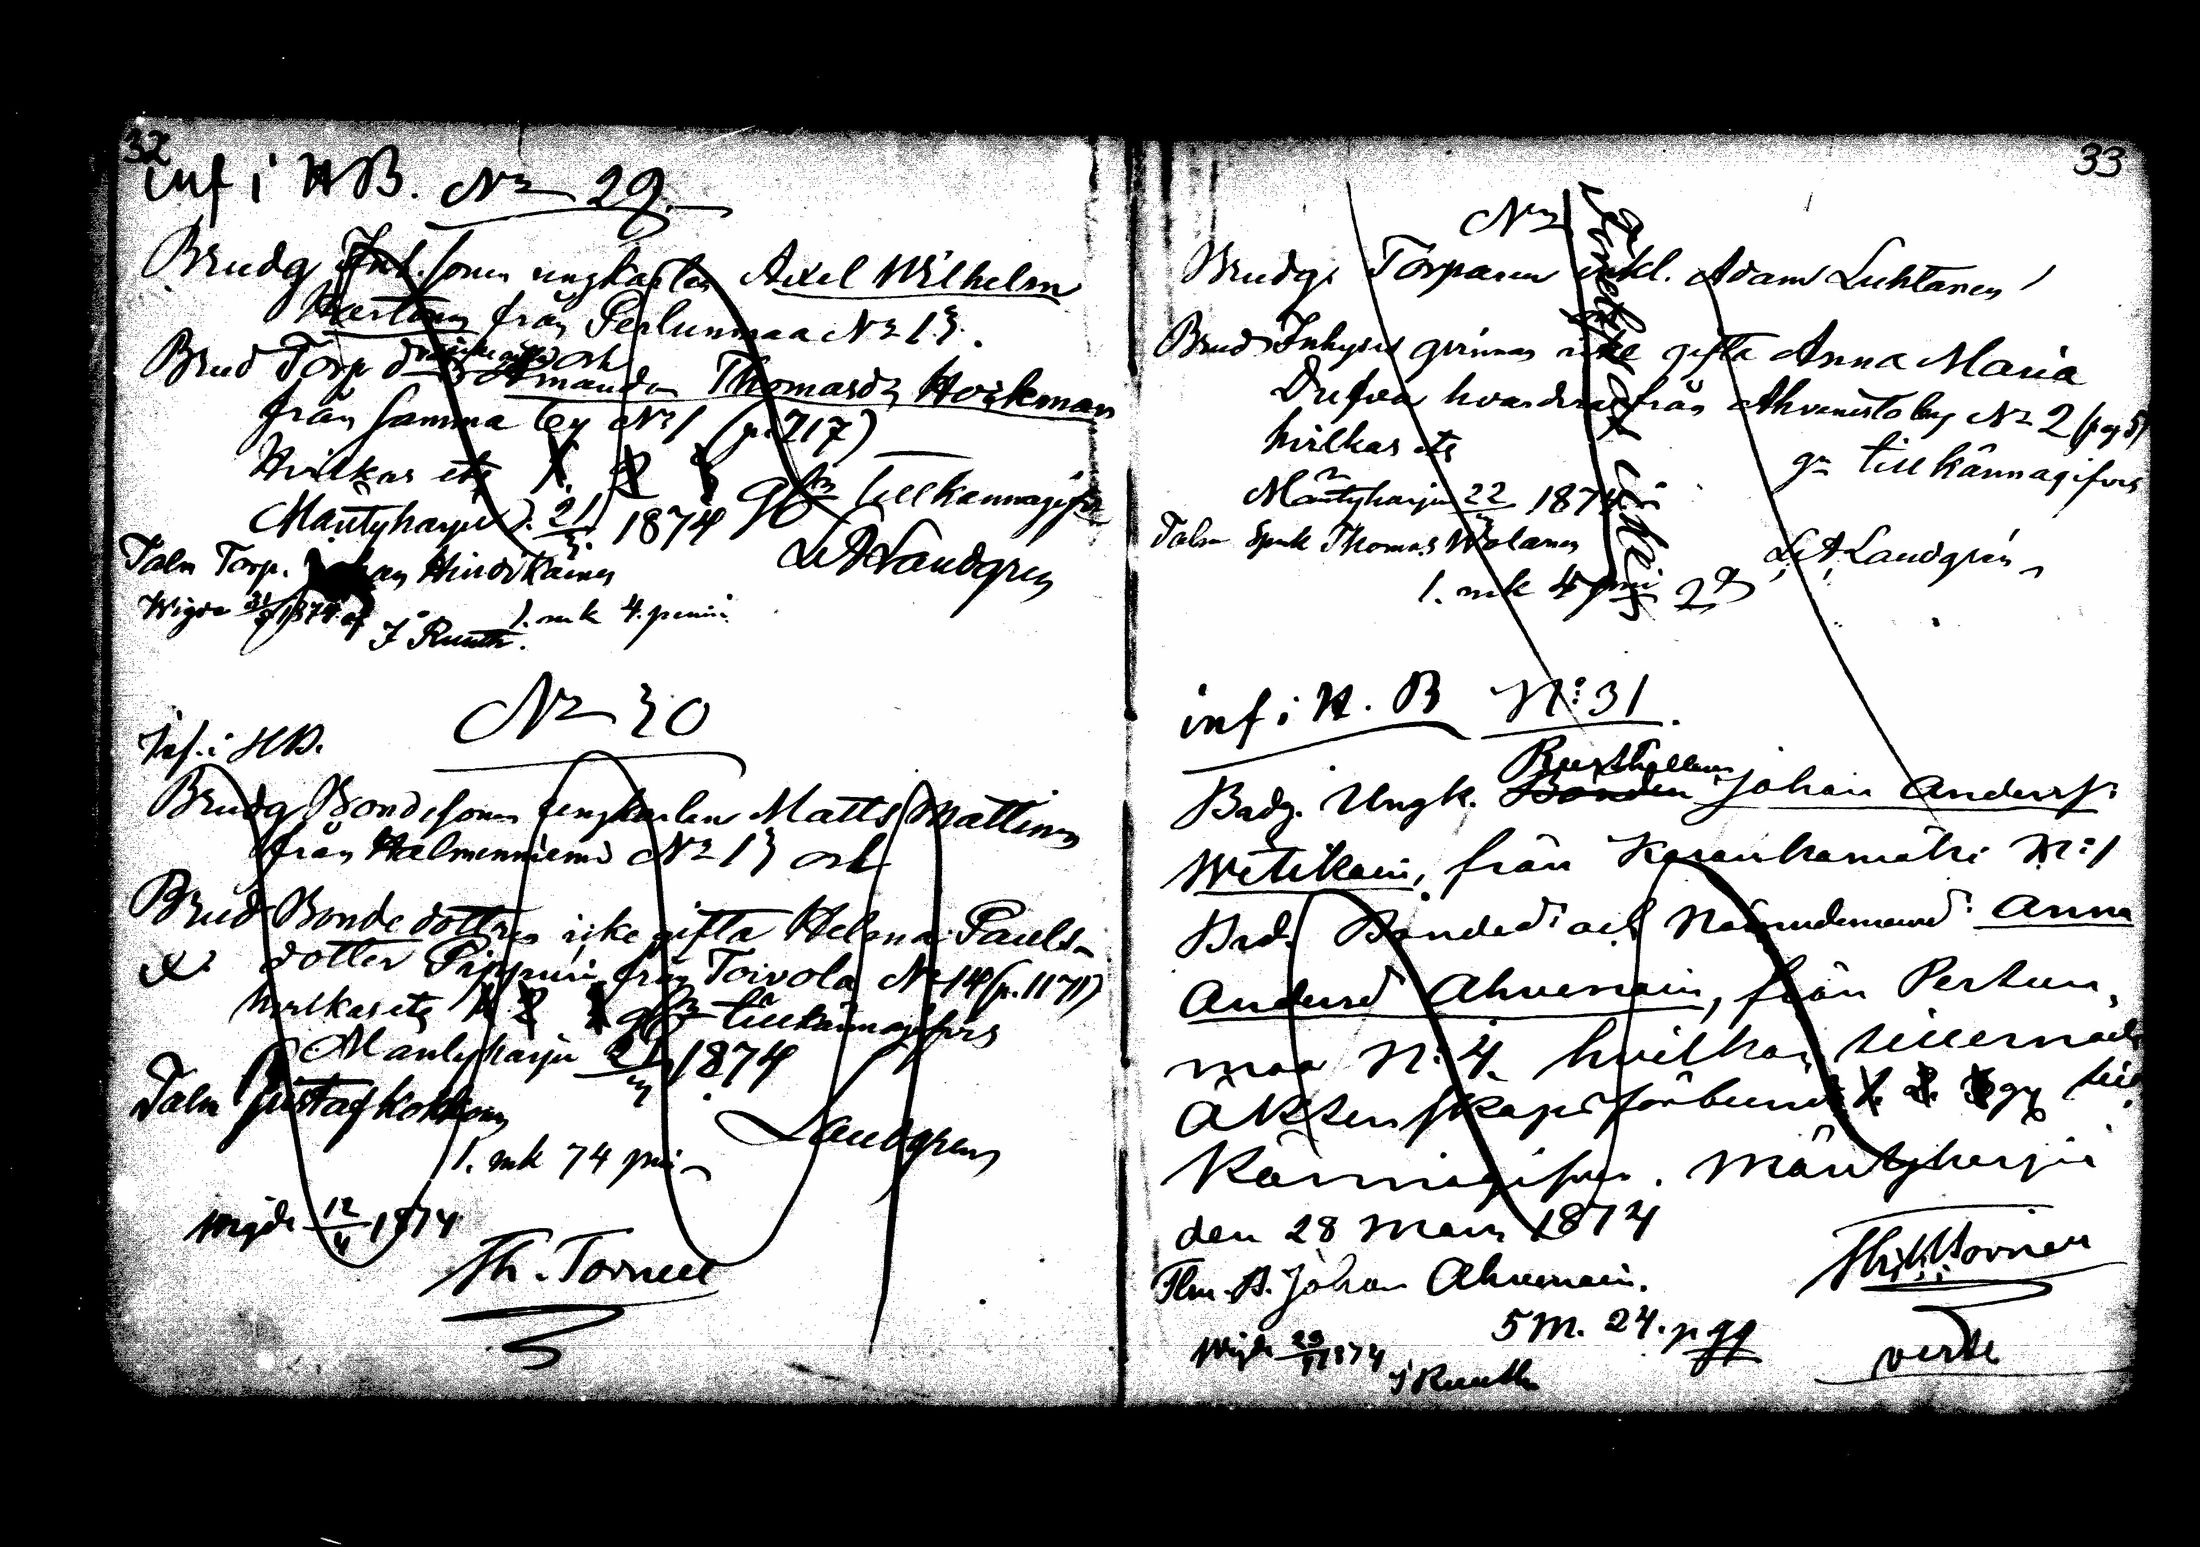 32
inf i HB. No 29.
Brudg Inh. sonen ungkarlen Axel Wilhelm
från Pertunmaa No 13.
Brud Torp och
Amanda Thomasdr Horkman
från samma by No 1 (p. 717)
Hvilkas etc 1. 2 3 gr tillkännagifvs
Mäntyharju d. 21/3 1874
LA Landgren
Talm Torp. Hindikainen
Wigde 31/5 1874 af J Ruuth.
1. mk 4. penni
No 30
Inf. i HB.
Brudg Bondesonen ungkarlen Matts Mattinen
från Halmenniemi No 13 och
Brud Bonde dottren icke gifta Helena Pauls-
dotter Pippuri från Toivola No 14 (p. 1171)
hvilkas etc 1 2 3 gr tillkännagifvs
Mäntyharju 21/3 1874
Talm Gustaf Kokkonen
Landgren
1. mk 74 pni
Wigde 12/4 1874
Th. Torneee
33
No
Brudg: Torparen enkl. Adam Luhtanen
Brud Inhyses qvinnan icke gifta Anna Maria
Dufva hvardera från Ahvenisto by No 2 (pag 5)
hvilkas etc
gr tillkännagifvs
Mäntyharju 22/3 1874
Talm Spmk Thomas Wolanen
LA Landgrén
1. mk 4 pni
inf i H. B No: 31
Rusthållaren
Brdg. Ungk. Bonden Johan Anderss:
Witikain, från Karankamäki No: 1
Brd. Bonded: och Nämndemansd: Anna
Andersd Ahvenain, från Pertun,
maa No: 4. hvilkas tillernade
Äktenskapsförbund 1. 2. 3 gg till,
kännagifves. Mäntyharju
den 28 Mars 1874
Tlm. B. Johan Ahvenain.
5 M. 24. p
Wigde 29/11 1874
J Ruuth
verte